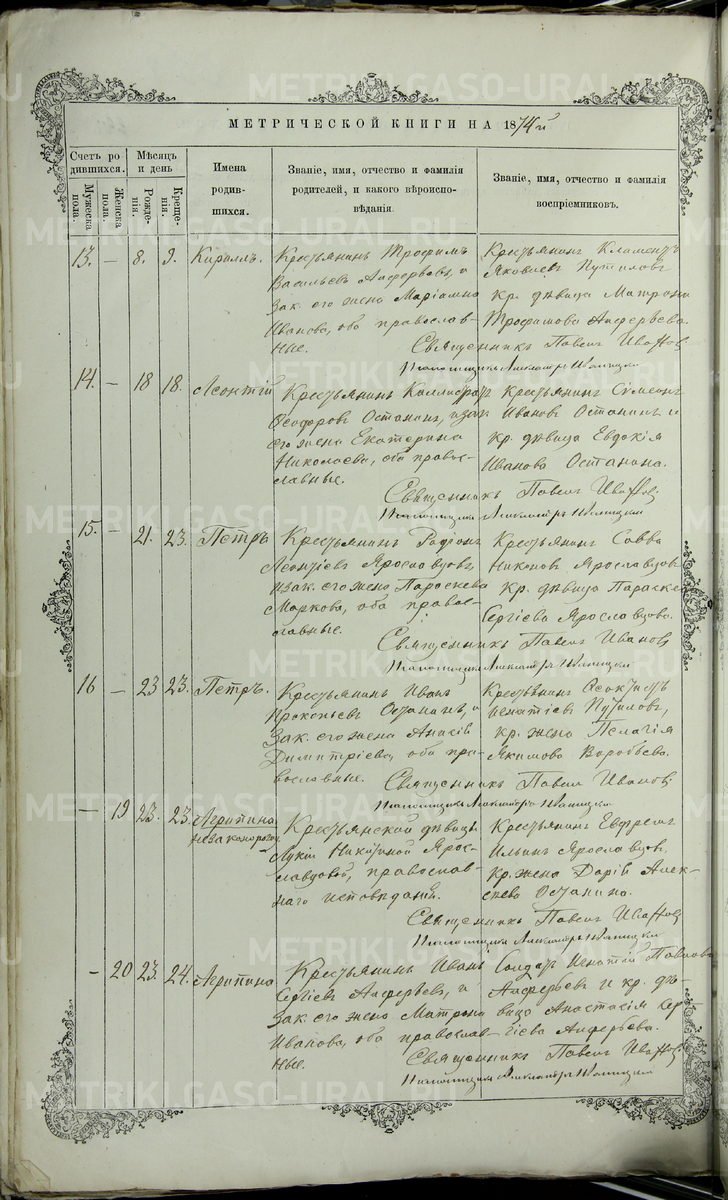 МЕТРИЧЕСКОЙ КНИГИ НА 1874й
Счетъ родившихся.
Мѣсяцъ и день
Имена родившихся.
Званіе, имя, отчество и фамилія родителей, и какого вѣроисповѣданія.
Званіе, имя, отчество и фамилія воспріемниковъ.
Мужеска пола.
Женска пола.
Рожденія.
Крещенія.
13. — 8. 9. Кириллъ.
Крестьянинъ Трофимъ
Васильевъ Анферьевъ, и
зак. его жена Маріамна
Иванова, оба православ-
ные.
Крестьянинъ Климентъ
Яковлевъ Путиловъ
кр. дѣвица Матрона
Трофимова Анферьева.
Священникъ Павелъ Ивановъ
14. — 18 18. Леонтій
Крестьянинъ Каллистратъ
Ѳеодоровъ Останинъ, и зак
его жена Екатерина
Николаева, оба правос-
лавные.
Крестьянинъ Сѵмеонъ
Ивановъ Останинъ и
кр. дѣвица Евдокія
Иванова Останина.
Священникъ Павелъ Ивановъ
15. — 21. 23. Петръ
Крестьянинъ Родіонъ
Леонтіевъ Ярославцовъ
и зак. его жена Параскева
Маркова, оба правос-
лавные.
Крестьянинъ Савва
Никоновъ Ярославцовъ
кр. дѣвица Параскев
Сергіева Ярославцова.
Священникъ Павелъ Ивановъ
16 — 23 23. Петръ.
Крестьянинъ Иванъ
Прокопьевъ Останинъ, и
зак. его жена
Димитріева, оба пра-
вославные.
Крестьянинъ Ѳеоктистъ
Игнатіевъ Путиловъ,
кр. жена Пелагія
Якимова Воробьева.
Священникъ Павелъ Ивановъ
— 19 23. 23. Агрипина
незаконорож
Крестьянской дѣвицы
Лукіи Никитиной Ярос-
лавцовой, православ-
наго исповѣданія.
Крестьянинъ Евфремъ
Ильинъ Ярославцовъ.
кр. жена Дарія Алек-
сѣева Останина.
Священникъ Павелъ Ивановъ
— 20 23. 24. Агрипина
Крестьянинъ Иванъ
Сергіевъ Анферьевъ, и
зак. его жена Матрона
Иванова, оба православ-
ные.
Солдатъ Игнатій Павловъ
Анферьевъ и кр. дѣ-
вица Анастасія Сер-
гіева Анферьева.
Священникъ Павелъ Ивановъ
METRIKI.GASO-URAL.RU